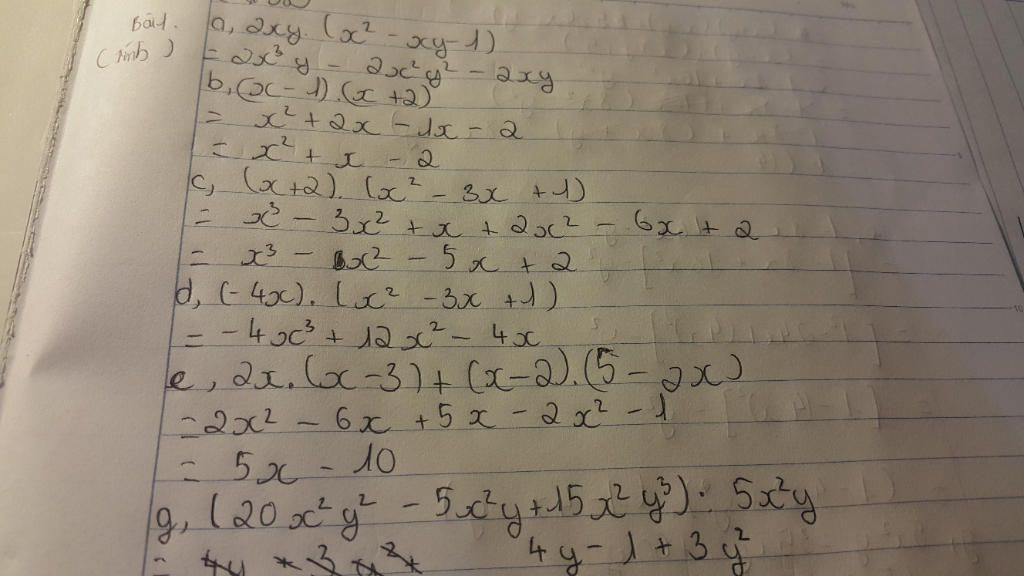 Bài 1.
(Tính)
a, 2xy. (x² - xy - 1)
= 2x³y - 2x²y² - 2xy
b, (x - 1).(x + 2)
= x² + 2x - 1x - 2
= x² + x - 2
c, (x+2). (x² - 3x + 1)
= x³ - 3x² + x + 2x² - 6x + 2
= x³ - x² - 5x + 2
d, (-4x). (x² - 3x + 1)
= -4x³ + 12x² - 4x
e, 2x.(x - 3) + (x - 2).(5 - 2x)
= 2x² - 6x + 5x - 2x² - 1
= 5x - 10
g, (20x²y² - 5x²y + 15x²y³) : 5x²y
= 4y - 1 + 3y²